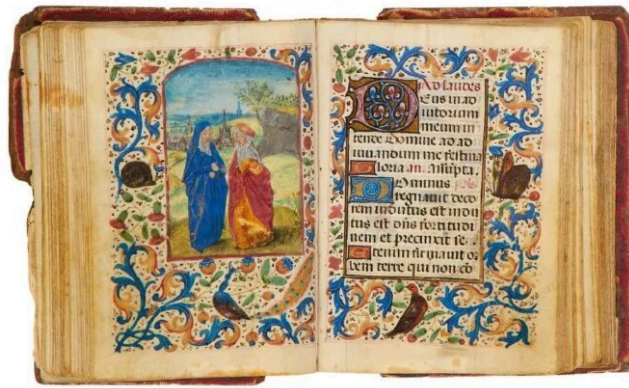 Ad laudes
Deus in ad
iutorium
meum in
tende Domine ad ad
iuuandum me festina
Gloria an. Assupta.
Dominus ps.
regnauit deco
rem indutus est indu
tus est dns fortitudi
nem et precinxit se.
Etenim firmauit or
bem terre qui non co